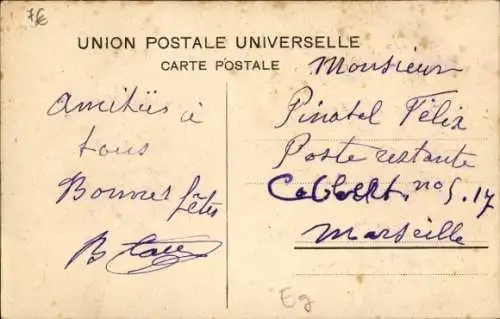 7€
UNION POSTALE UNIVERSELLE
CARTE POSTALE
Amitiés à
tous
Bonnes fêtes
Monsieur
Pinatel Félix
Poste restante
no 5.17
Marseille
Eg